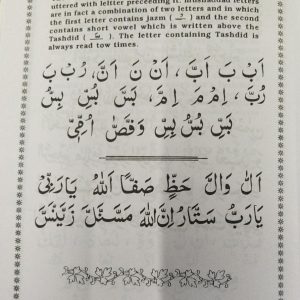 uttered with leltter preceeding it. Mushaddad letters
are in fact a combination of two letters and in which
the first letter contains jazm ( ـْـ ) and the second
contains short vowel which is written above the
Tashdid ( ـَّـ ). The letter containing Tashdid is
always read tow times.
اَبْ بَ اَبَّ، اَنْ نَ اَنَّ، رُبْ بَ
رُبَّ، اِمْ مَ اِمَّ، بَسَّ بُسَّ بِسُّ
بَسِّ بُسُّ بِسِّ وَقَصَّ
اَلُّ وَالَّ حَظٍّ صَفًّا اَللّٰهُ يَارَبِّیْ
يَارَبُّ سَتَّارُ اِنَّ اللّٰهَ زَيَّنَسَّ